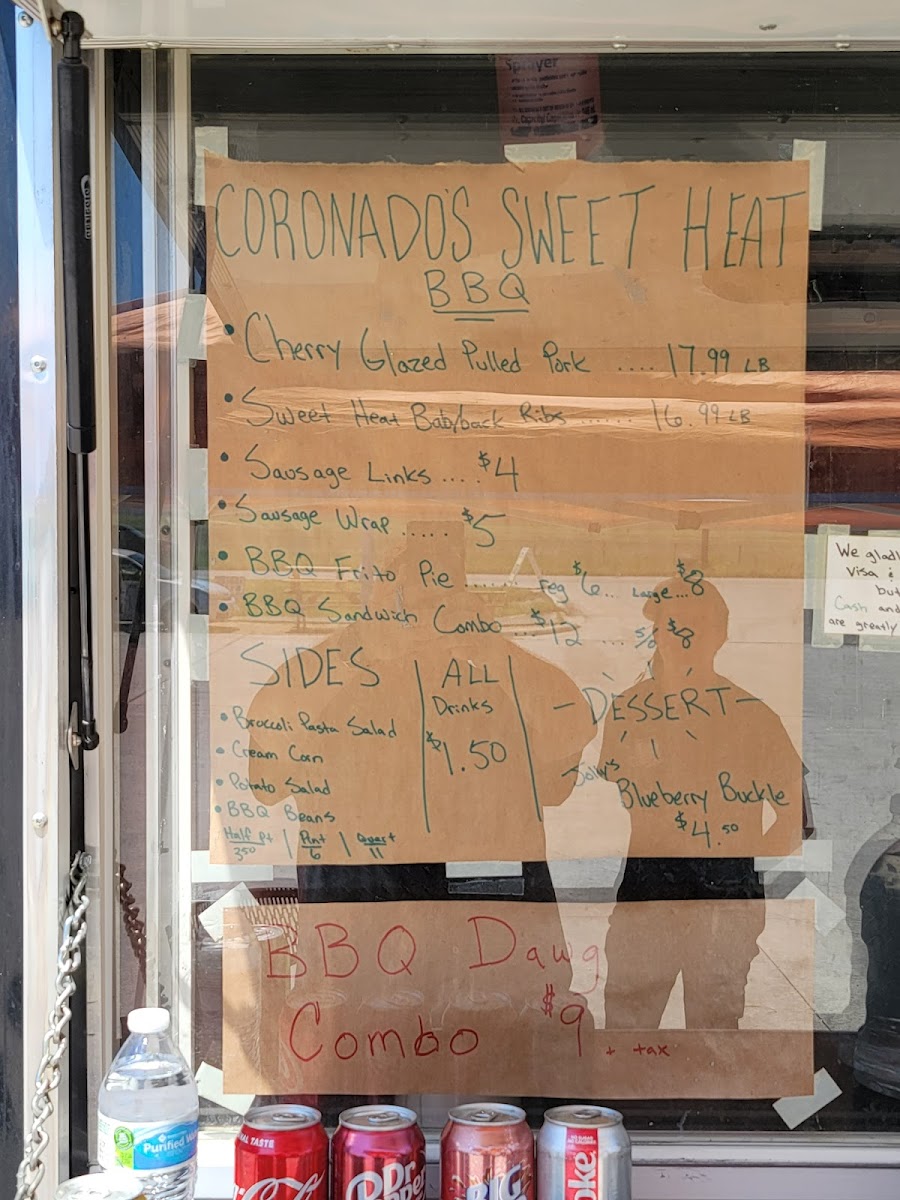 Sprayer
CORONADO'S SWEET HEAT
BBQ
• Cherry Glazed Pulled Pork .... 17.99 LB
• Sweet Heat Babyback Ribs ...... 16.99 LB
• Sausage Links .... $4
• Sausage Wrap ..... $5
• BBQ Frito Pie ...... reg $6... Large...$8
• BBQ Sandwich Combo ... $12 .... s/o $8
SIDES
• Broccoli Pasta Salad
• Cream Corn
• Potato Salad
• BBQ Beans
Half pt | Pint | Quart
3.50 | 6 | 11
ALL
Drinks
$1.50
- DESSERT -
Blueberry Buckle
$4.50
We gladl
Visa &
but
Cash and
are greatly
BBQ Dawg
Combo $9 + tax
Purified Wa
AL TASTE
Dr
BIG
oke